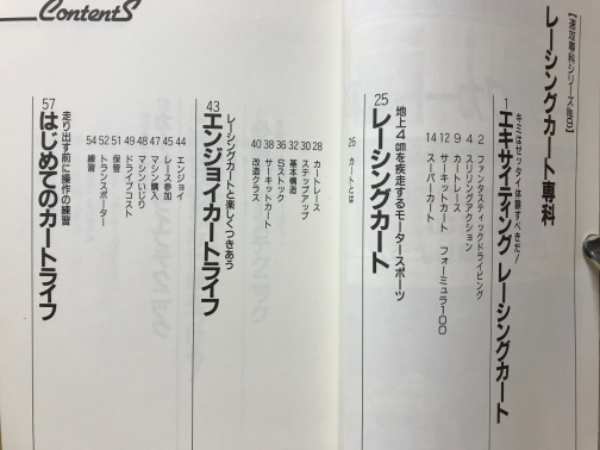 Contents
【速攻専科シリーズ№9】
レーシングカート専科
キミはゼッタイ体験すべきだ!
1 エキサイティング レーシングカート
2 ファンタスティックドライビング
4 スリリングアクション
9 カートレース
12 サーキットカート フォーミュラ100
14 スーパーカート
地上4㎝を疾走するモータースポーツ
25 レーシングカート
25 カートとは
28 カートレース
30 ステップアップ
32 基本構造
36 Sストック
38 サーキットカート
40 改造クラス
レーシングカートと楽しくつきあう
43 エンジョイカートライフ
44 エンジョイ
45 レース参加
47 マシン購入
48 マシンいじり
49 ドライブコスト
51 保管
52 トランスポーター
54 練習
走り出す前に操作の練習
57 はじめてのカートライフ